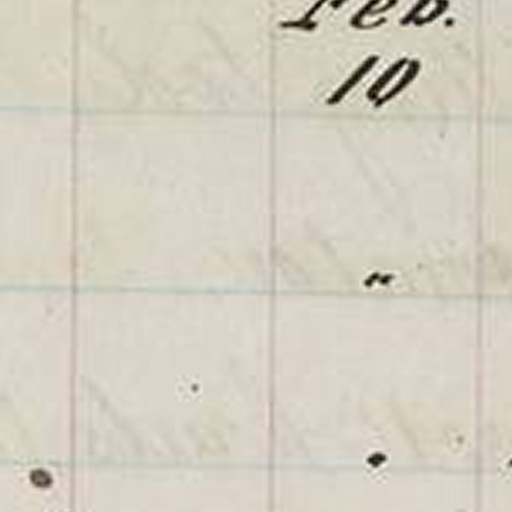 Feb.
10
"
"